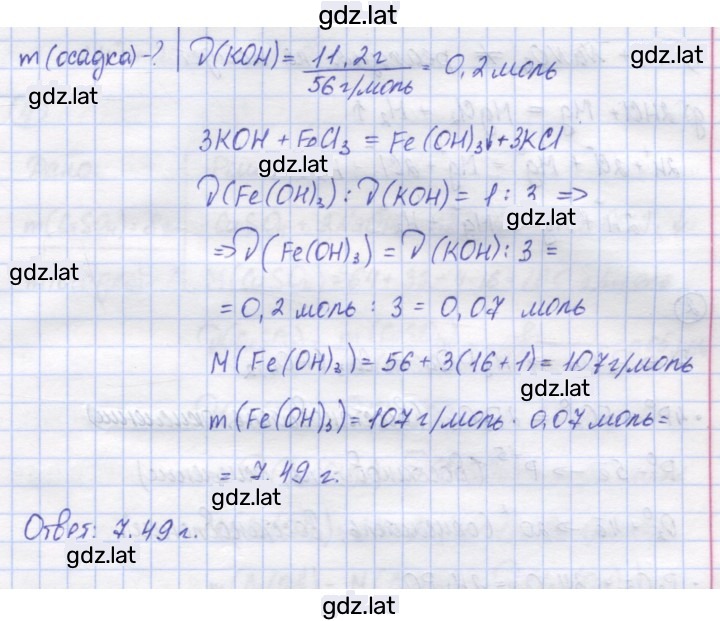 gdz.lat
m(осадка)-? ν(KOH) = 11,2г / 56г/моль = 0,2 моль
gdz.lat
gdz.lat
3KOH + FeCl₃ = Fe(OH)₃↓ + 3KCl
gdz.lat
ν(Fe(OH)₃) : ν(KOH) = 1 : 3 =>
gdz.lat
=> ν(Fe(OH)₃) = ν(KOH) : 3 =
gdz.lat
= 0,2 моль : 3 = 0,07 моль
M(Fe(OH)₃) = 56 + 3(16 + 1) = 107г/моль
gdz.lat
m(Fe(OH)₃) = 107г/моль · 0,07 моль =
= 7.49 г.
gdz.lat
Ответ: 7.49 г.
gdz.lat
gdz.lat